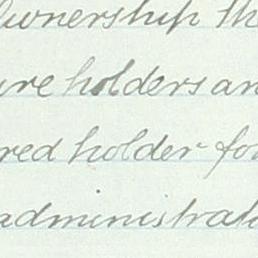 Ownership th
ure holders an
red holder for
administrat